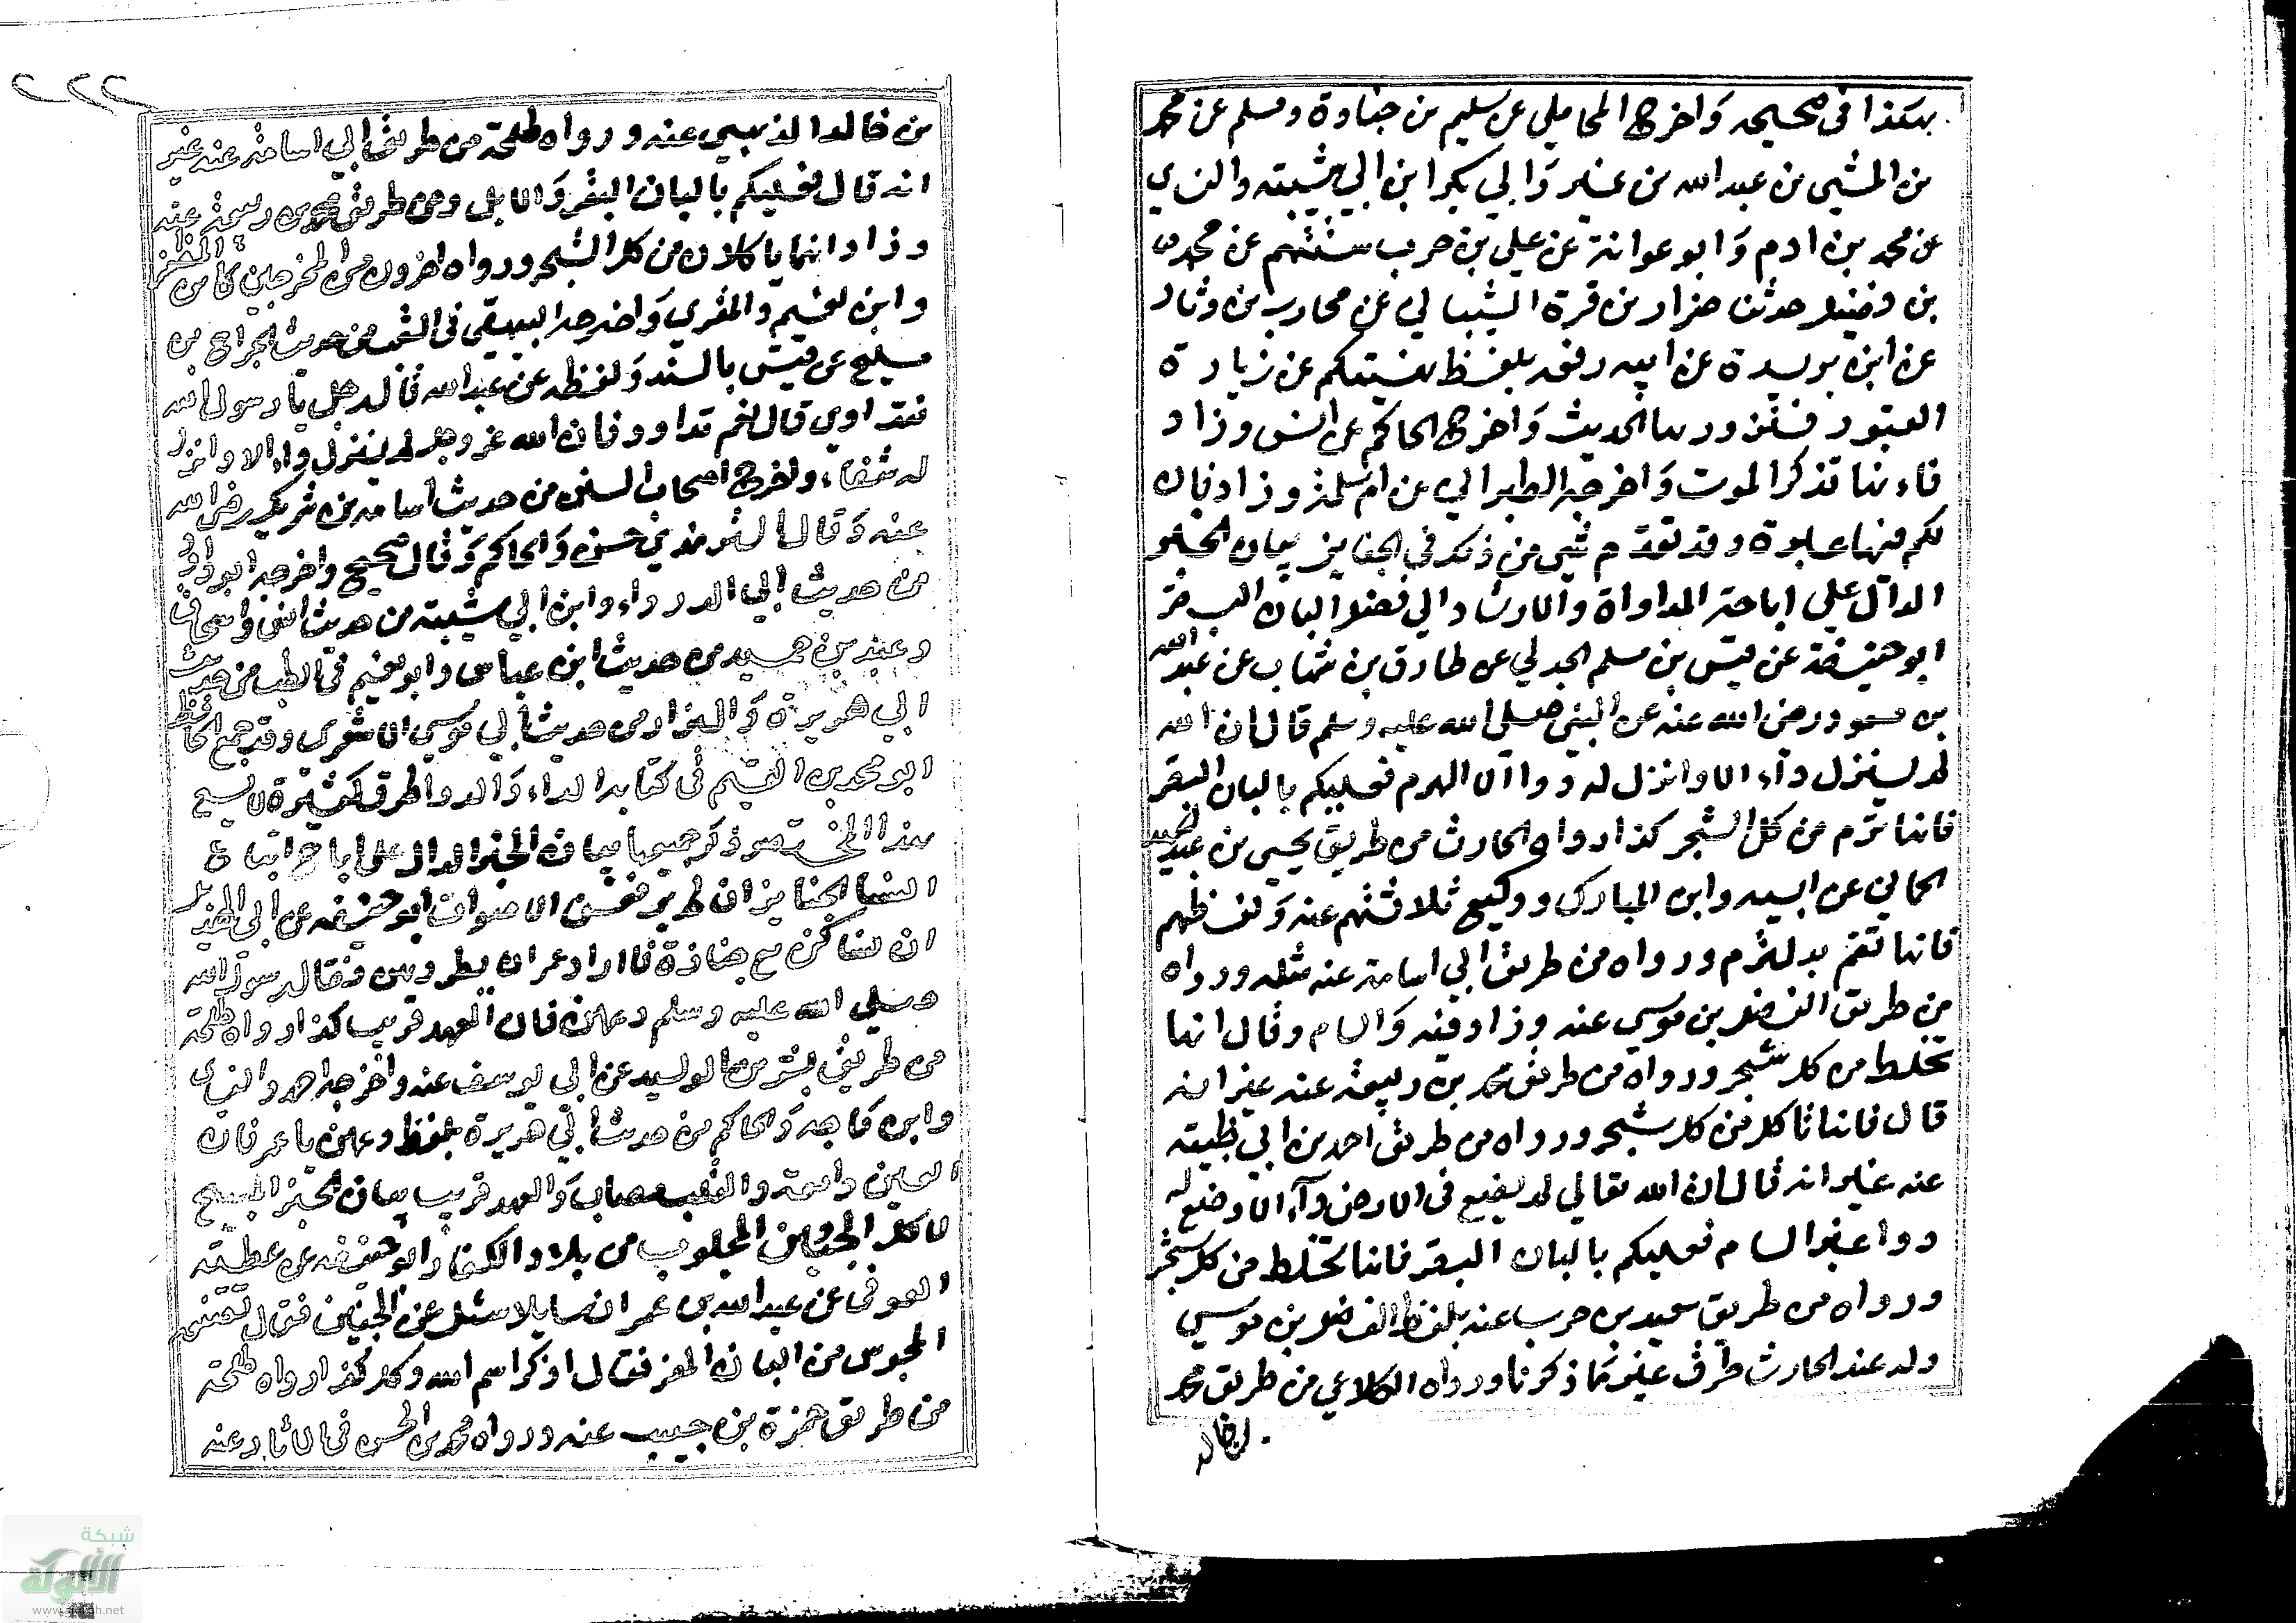 بهذا في صحيحه وَاخرج المحاملي عن سليم بن جنادة ومسلم عن محمد
بن المثنى بن عبد الله بن نمير وَابي بكر ابن ابي شيبته والنسائي
عن محمد بن ادم وَابو عوانة عن علي بن حرب ستتهم عن محمد
بن فضيل حدثنا ضرار بن قرة الشيباني عن محارب بن دثار
عن ابن بريدة عن ابيه رفعه بلفظ نهيتكم عن زيارة
القبور فتزوروها الحديث وَاخرج الحاكم عن انس وزاد
فاء نها تذكر الموت وَاخرجه الطبراني عن ام سلمة وزاد فان
لكم فيها عبرة وقد تقدم شي من ذلك في الجنايز بيان الخبر
الدال علي اباحة المداواة والارشاد الي فضل البان البقر
ابو حنيفة عن قيس بن مسلم الجدلي عن طارق بن شهاب عن عبد الله
بن مسعود رضي الله عنه عن النبي صلي الله عليه وسلم قال ان الله
لم ينزل دآء الا وانزل له دواالا الهرم فعليكم بالبان البقر
فانها ترم من كل الشجر كذا رواه الحارث من طريق يحيي بن عبد الحميد
الحماني عن ابيه وابن المبارك ووكيع ثلاثتهم عنه وَلفظهم
فانها تقم بدل ترم ورواه من طريق ابي اسامة عنه مثله ورواه
من طريق الفضل بن موسي عنه وزاد فيه وَالسام وقال انها
تخلط من كل شجر ورواه من طريق محمد بن ربيعة عنه غير انه
قال فانها تاكل من كل شجر ورواه من طريق احمد بن ابي ظبية
عنه غير انه قال ان الله تعالي لم يضع في الارض دآء الا وضع له
دوا غير السام فعليكم بالبان البقر فانها تخلط من كل شجر
ورواه من طريق سعيد بن حرب عنه بلفظ الفضل بن موسي
وله عند الحارث طرق غير ما ذكرنا ورواه الكلاعي من طريق محمد
بن خالد
بن خالد الذهبي عنه ورواه طلحة من طريق ابي اسامة عنه غير
انه قال فعليكم بالبان البقر وَالابل ومن طريق محمد بن ربيعة عنه
وزاد انهما ياكلان من كل الشجر ورواه اخرون من المخرجين كابن المظفر
وابن نعيم والمقري وَاخرجه البيهقي في الشعب من حديث الجراح بن
مليح عن قيس بالسند وَلفظه عن عبد الله قال رجل يا رسول الله
نتداوي قال نعم تداووا فان الله عز وجل لم ينزل داء الا وانزل
له شفاء واخرج اصحاب السنن من حديث اسامة بن شريك رضي الله
عنه وَقال الترمذي حسن وَالحاكم وَقال صحيح واخرجه ابو داود
من حديث ابي الدرداء وابن ابي شيبة من حديث انس واسحاق
وعبد بن حميد من حديث ابن عباس وابو نعيم في الطب من حديث
ابي هريرة وَالبزار من حديث ابي موسي الاشعري وقد جمع الحافظ
ابو محمد بن القيم في كتابه الداء وَالدوا طرق كثيرة لا يسع
هذا المختصر ذكر جميعها بيان الخبر الدال علي اباحة اتباع
النسا الجنايز ان لم يرفعن الاصوات ابو حنيفه عن ابي الهذيل
ان نسا كن مع جنازة فااراد عمر ان يطردهن فقال رسول الله
صلي الله عليه وسلم دعهن فان العهد قريب كذا رواه طلحة
من طريق بشر بن الوليد عن ابي يوسف عنه واخرجه احمد والنسائي
وابن ماجه وَالحاكم من حديث ابي هريرة بلفظ دعهن يا عمر فان
العين دامعة والقلب مصاب وَالعهد قريب بيان الخبز المبيح
لاكل الجبن المجلوب من بلاد الكفار ابو حنيفه عن عطية
العوفي عن عبد الله بن عمر ان سايلا سئل عن الجبن فقال تصنعه
المجوس من البان المعز فقال اذكر اسم الله وكل كذا رواه طلحة
من طريق حمزة بن حبيب عنه ورواه محمد بن الحسن في الاثار عنه
شبكة
الألوكة